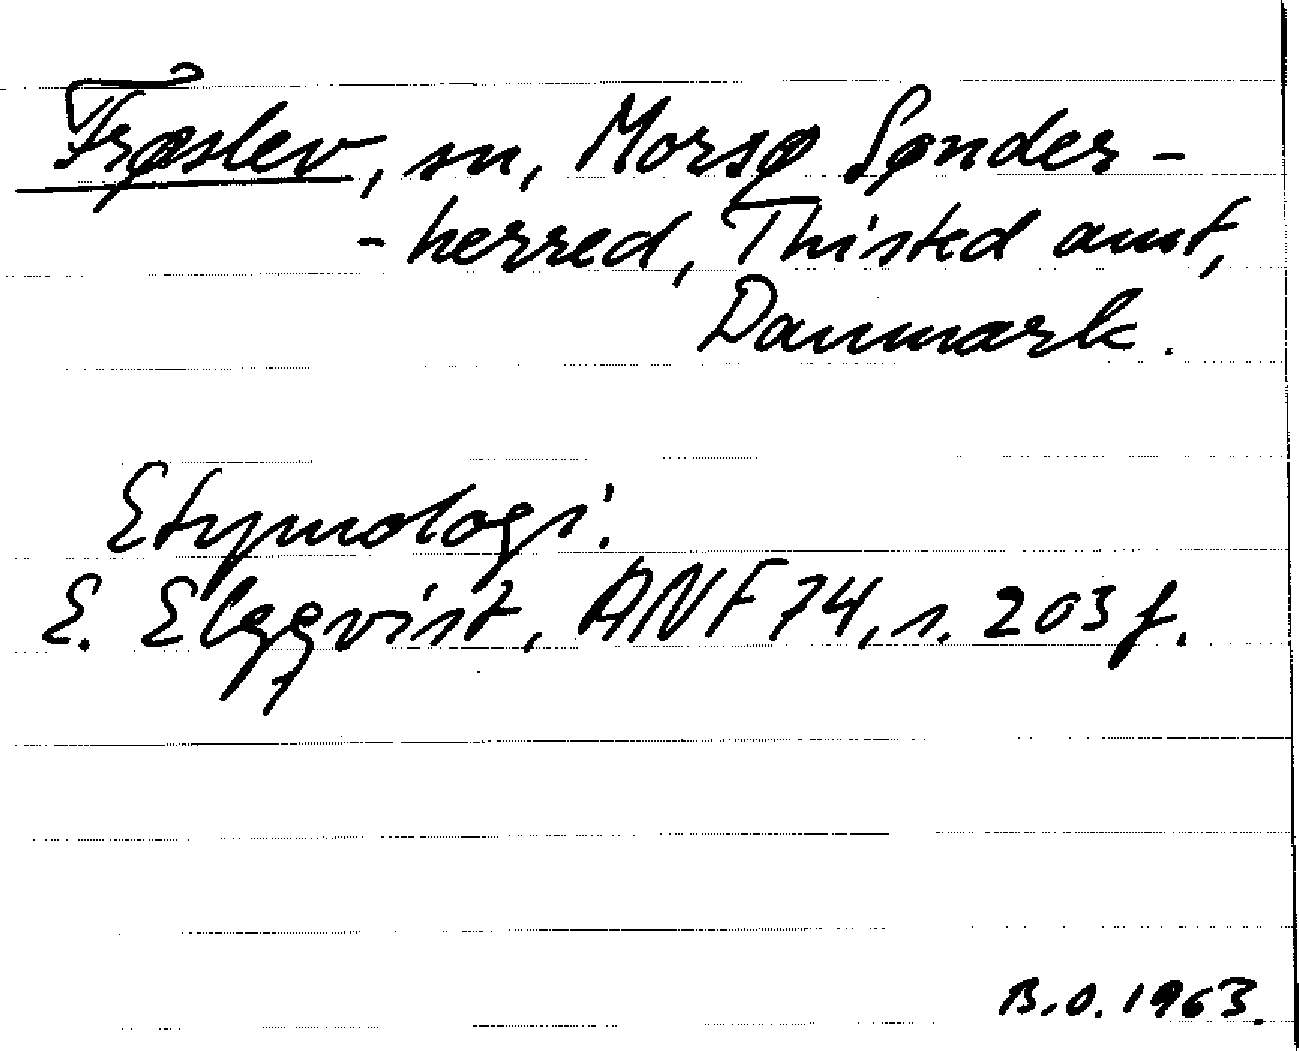 Frøslev, sn, Morsø Sønder-
-herred, Thisted amt,
Danmark.
Etymologi:
E. Elgqvist, ANF 74, s. 203 f.
B.O. 1963.